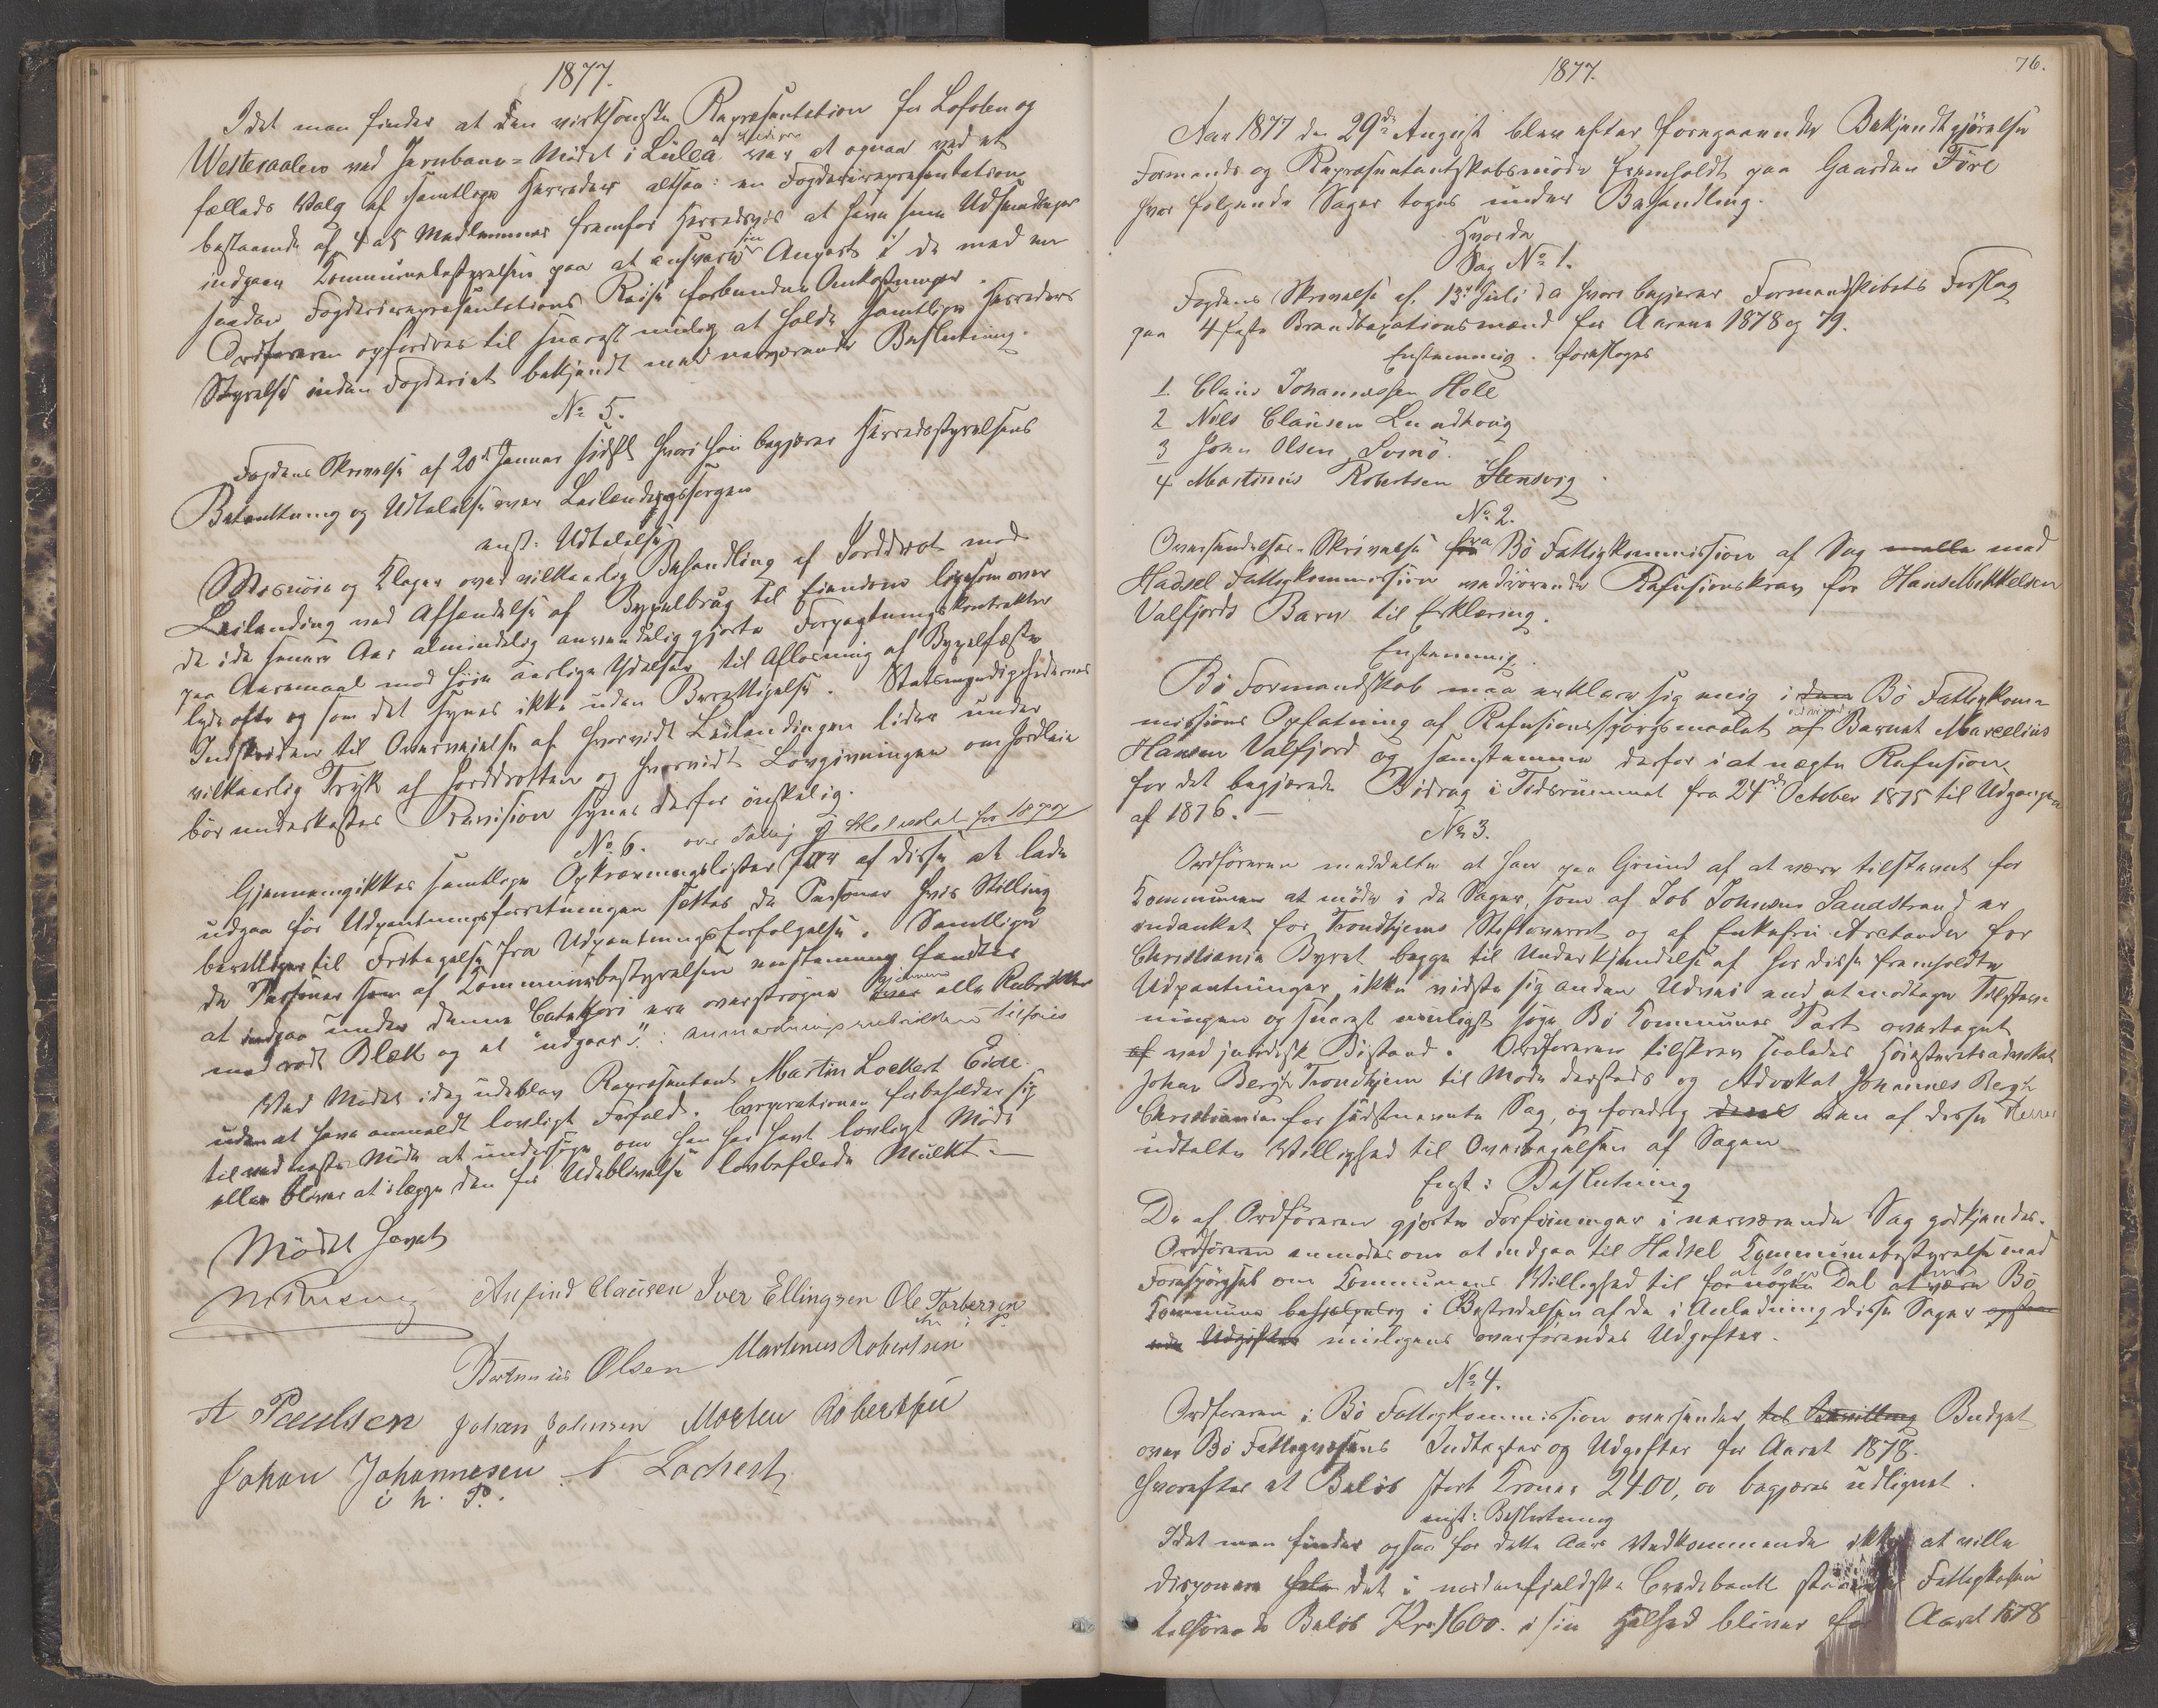 1877.
Idet man finder at den virksomste Repræsentation for Lofoten og
Westeraalen ved Jernbane-Mødet i Luleå var at opnaa ved et
fælleds Valg af samtlige Herreder altsaa: en Fogderirepresentation
bestaaende af 4 a 5 Medlemmer fremfor Herredsvis at have sine Udsendinger
indgaar Kommunebestyrelsen paa at ansvare sin Anpart i de med en
saadan Fogderirepresentations Reise forbundne Omkostninger.
Ordføreren opfordres til snarest mulig at holde samtlige Herreders
Styrelse inden Fogderiet bekjendt med nærværende Beslutning.
No 5.
Fogdens Skrivelse af 20de Januar sidstl. hvori han begjærer Herredsstyrelsens
Betænkning og Udtalelse over Leilendingssorgen
enst. Udtalelse
Misnøie og Klager over vilkaarlig Behandling af Jorddrot mod
Leilending ved Afhændelse af Bygselbrug til Eiendom ligesom over
de i de senere Aar almindelig anvendelig gjorte Forpagtningskontrakter
paa Aaremaal med høie aarlige Ydelser til Afløsning af Bygselfæste
lyde ofte og som det synes ikke uden Berettigelse. Statsmyndighedernes
Indskriden til Overveielse af hvorvidt Leilendingen lider under
vilkaarlig Tryk af Jorddrotten og hvorvidt Lovgivningen om Jordleie
bør underkastes Revision synes derfor ønskelig.
No 6. over Fattig & Skoleskat for 1877
Gjennemgikkes samtlige Opkrævningslister for af disse at lade
udgaa før Udpantningsforretningen sættes de Personer hvis Stilling
berettiger til Fritagelse fra Udpantningsforfølgelse. Samtlige
de Personer som af Kommunebestyrelsen enstemmig fandtes
at indgaa under denne Categori ere overstrøgne gjennem alle Rubrikker
med rødt Blæk og et "udgaar" i anmærkningsrubrikken tilføiet
Ved Mødet idag udeblev Repræsentant Martin Lockert Eide
uden at have anmeldt lovligt Forfald. Corporationen forbeholder sig
til ved næste Møde at undersøge om han har havt lovligt Møde
eller bliver at ilægge den for Udeblivelse lovbefalede Mulkt.
Mødet hævet
Anfind Clausen Iver Ellingsen Ole Torbersen
Bertinius Olsen Martinus Robertsen
A Paulsen Johan Johnsen Morten Robertsen
Johan Johannesen N Lockert
i h. P.
1877. 76.
Aar 1877 den 29de August blev efter foregaaende Bekjendtgjørelse
Formands og Repræsentantskabsmøde fremholdt paa Gaarden Føre
hvor følgende Sager toges under Behandling.
Hvorda
Sag No 1.
Fogdens Skrivelse af 13de Juli d A hvori begjæres Formandskabets Forslag
paa 4 faste Brandtaxationsmænd for Aarene 1878 og 79.
Enstemmig. foresloges
1. Claus Johannessen Hole
2 Nils Clausen Lundhoug
3 John Olsen Svinø.
4 Martinus Robertsen Stensvig
No 2.
Oversendelses-Skrivelse fra Bø Fattigkommission af Sag melle med
Hadsel Fattigkommission vedrørende Refusionskrav for Hans Mikkelsen
Valfjords Barn til Erklæring.
Enstemmig.
Bø Formandskab maa erklære sig enig i den Bø Fattigkom-
missions Opfatning af Refusionsspørgsmaalet af Barnet Marcelius
Hansen Valfjord og samstemme derfor i at nægte Refusion
for det begjærede Bidrag i Tidsrummet fra 24de October 1875 til Udgangen
af 1876. —
No 3.
Ordføreren meddelte at han paa Grund af at være tilstævnt for
Kommunen at møde i de Sager, som af Job Johnsen Sandstrand er
indanket for Trondhjems Stiftsoverret og af Enkefru Arctander for
Christiania Byret begge til Underkjendelse af hos disse fremholdte
Udpantninger, ikke vidste sig anden Udvei end at modtage Tilstæv-
ningen og snarest muligst søge Bø Kommunes Tarv overtaget
af ved juridisk Bistand. Ordføreren tilskrev saaledes Høiesteretsadvokat
Johan Bergh Trondhjem til Møde dersteds og Advokat Johannes Bergh
Christiania for sidstnævnte Sag, og foredrog deres den af disse Herrer
udtalte Villighed til Overtagelsen af Sagen
Enst: Beslutning
De af Ordføreren gjorte Forføininger i nærværende Sag godkjendes.
Ordføreren anmodes om at indgaa til Hadsel Kommunebestyrelse med
Forespørgsel om Kommunens Villighed til for nogen Del at være Bø
Kommune behjelpelig i Bestridelsen af de i Anledning disse Sager opstaa-
ende Udgifter muligens overførendes Udgifter.
No 4.
Ordføreren i Bø Fattigkommission oversender til Bevilling Budget
over Bø Fattigvæsens Indtægter og Udgifter for Aaret 1878.
Hvorefter et Beløb stort Kroner 2400,00 begjæres udlignet.
enst: Beslutning
Idet man finder ogsaa for dette Aars Vedkommende ikke at ville
disponere hele det i nordenfjeldske Creditbank staaende Fattigkassen
tilhørende Beløb Kr. 1600. i sin Helhed bliver for Aaret 1878